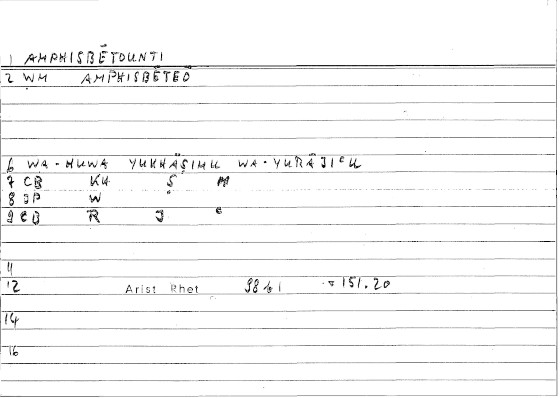 1 AMPHISBĒTOUNTI
2 WM AMPHISBĒTEŌ
6 WA-HUWA YUKHĀṢIMU WA-YURĀJIᶜU
7 CB KH Ṣ M
8 JP W
9 CB R J ᶜ
11
12 Arist Rhet 98b1 = 151.20
14
16